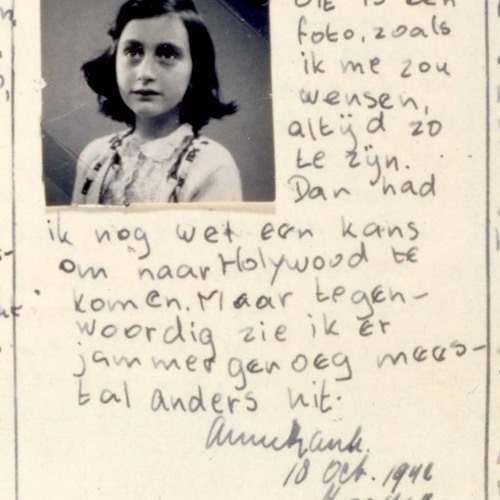 Dit is een
foto, zoals
ik me zou
wensen,
altijd zo
te zijn.
Dan had
ik nog wel een kans
om naar Holywood te
komen. Maar tegen-
woordig zie ik er
jammer genoeg mees-
tal anders uit.
Annefrank.
18 Oct. 1942